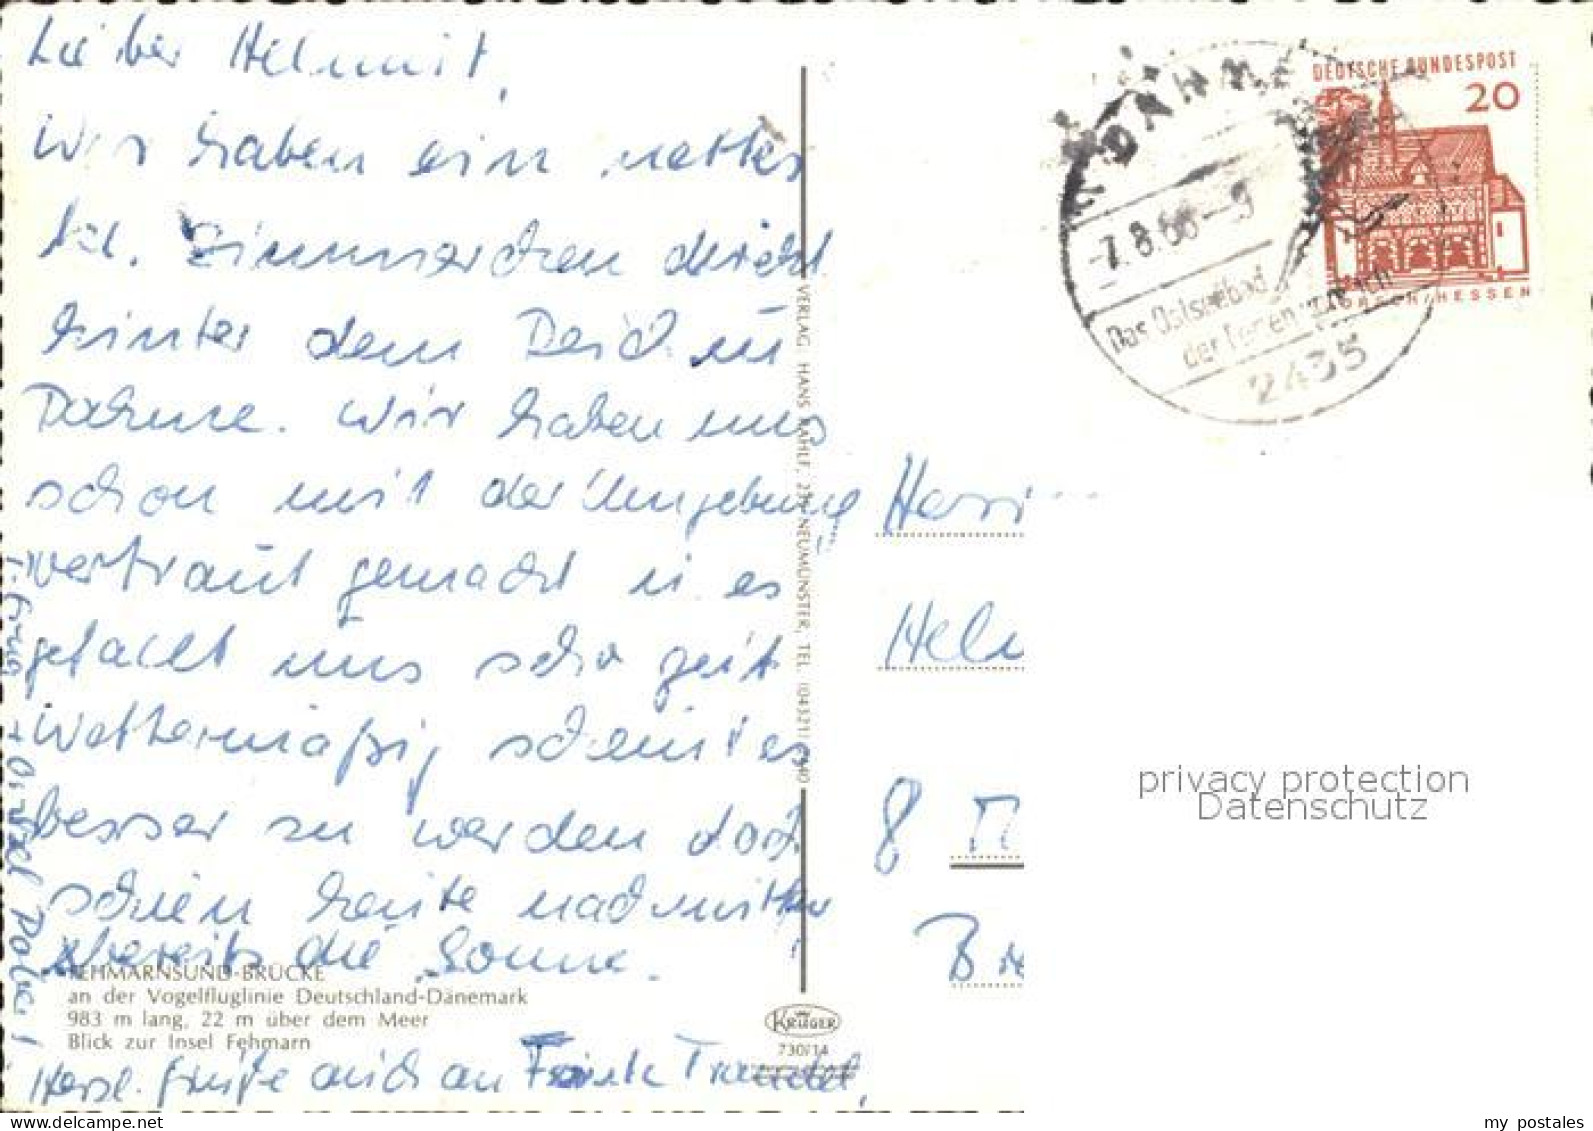 Lieber Helmut,
Wir haben ein nettes
kl. Zimmerchen direkt
hinter dem Deich in
Dahme. Wir haben uns
schon mit der Umgebung
vertraut gemacht u. es
gefällt uns sehr gut
Wettermäßig scheint es
besser zu werden doch
schien heute nachmittag
bereits die Sonne.
Herzl. Grüße auch an Frank Trendel,
FEHMARNSUND-BRÜCKE
an der Vogelfluglinie Deutschland-Dänemark
983 m lang, 22 m über dem Meer
Blick zur Insel Fehmarn
VERLAG: HANS KAHLF, 235 NEUMÜNSTER, TEL. (04321)
KRÜGER
730/14
DAHME
-7.8.66-9
Das Ostseebad
der
2435
DEUTSCHE BUNDESPOST
20
LORSCH/HESSEN
Herrn
Hel
8 M
B
privacy protection
Datenschutz
my postales